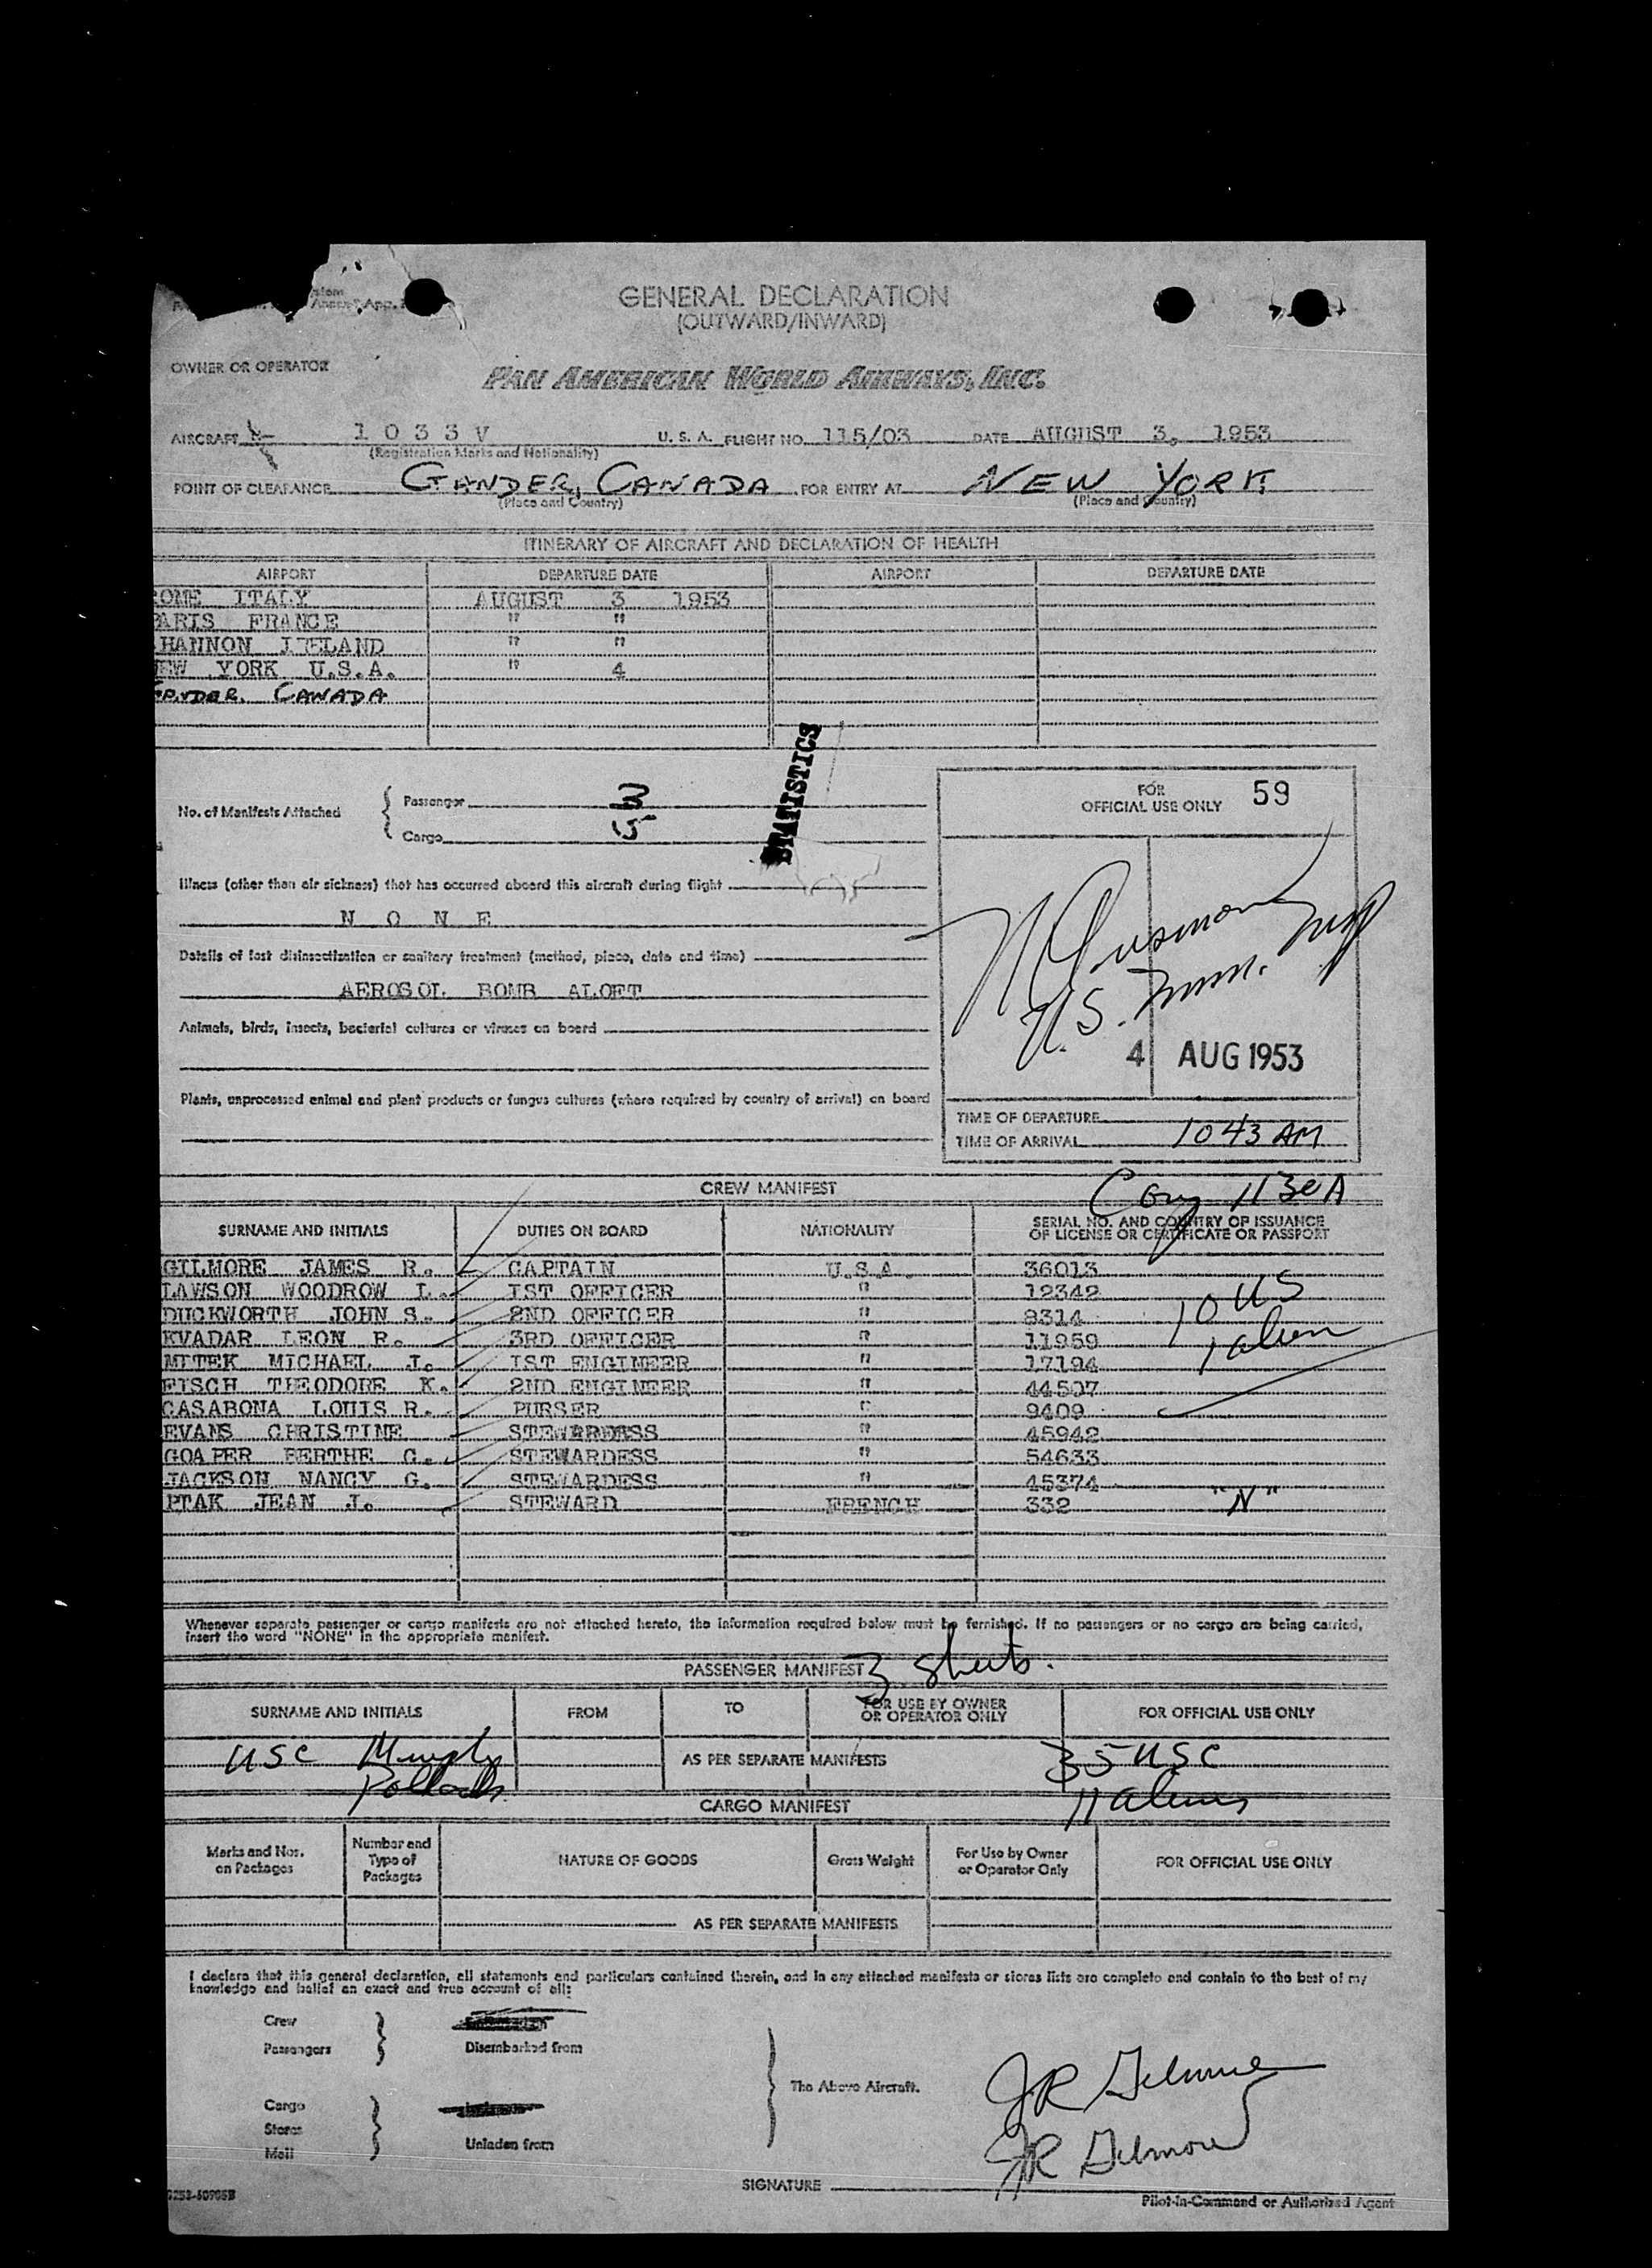 GENERAL DECLARATION
(OUTWARD/INWARD)
OWNER OR OPERATOR
PAN AMERICAN WORLD AIRWAYS, INC.
AIRCRAFT N 1033V U. S. A. FLIGHT NO. 115/03 DATE AUGUST 3, 1953
(Registration Marks and Nationality)
POINT OF CLEARANCE GANDER, CANADA FOR ENTRY AT NEW YORK
(Place and Country) (Place and Country)
ITINERARY OF AIRCRAFT AND DECLARATION OF HEALTH
AIRPORT DEPARTURE DATE AIRPORT DEPARTURE DATE
OME ITALY AUGUST 3 1953
ARIS FRANCE " "
HANNON IRELAND " "
EW YORK U.S.A. " 4
GANDER, CANADA
STATISTICS
No. of Manifests Attached
Passenger 3
Cargo 5
FOR OFFICIAL USE ONLY 59
Illness (other than air sickness) that has occurred aboard this aircraft during flight
N O N E
Details of last disinsectization or sanitary treatment (method, place, date and time)
AEROSOL BOMB ALOFT
Animals, birds, insects, bacterial cultures or viruses on board
U.S. Imm. Insp
4 AUG 1953
Plants, unprocessed animal and plant products or fungus cultures (where required by country of arrival) on board
TIME OF DEPARTURE
TIME OF ARRIVAL 1043 AM
CREW MANIFEST
SURNAME AND INITIALS DUTIES ON BOARD NATIONALITY SERIAL NO. AND COUNTRY OF ISSUANCE OF LICENSE OR CERTIFICATE OR PASSPORT
GILMORE JAMES R. CAPTAIN U.S.A. 36013
LAWSON WOODROW L. 1ST OFFICER " 12342
DUCKWORTH JOHN S. 2ND OFFICER " 8314 10 US
KVADAR LEON R. 3RD OFFICER " 11959 1 alien
MITEK MICHAEL J. 1ST ENGINEER " 17194
FISCH THEODORE K. 2ND ENGINEER " 44507
CASABONA LOUIS R. PURSER " 9409
EVANS CHRISTINE STEWARDESS " 45942
GOAPER BERTHE G. STEWARDESS " 54633
JACKSON NANCY G. STEWARDESS " 45374
PTAK JEAN J. STEWARD FRENCH 332 "N"
Whenever separate passenger or cargo manifests are not attached hereto, the information required below must be furnished. If no passengers or no cargo are being carried,
insert the word "NONE" in the appropriate manifest.
PASSENGER MANIFEST 3 sheets.
SURNAME AND INITIALS FROM TO FOR USE BY OWNER OR OPERATOR ONLY FOR OFFICIAL USE ONLY
USC Murphy AS PER SEPARATE MANIFESTS 35 USC
11 aliens
CARGO MANIFEST
Marks and Nos. on Packages Number and Type of Packages NATURE OF GOODS Gross Weight For Use by Owner or Operator Only FOR OFFICIAL USE ONLY
AS PER SEPARATE MANIFESTS
I declare that this general declaration, all statements and particulars contained therein, and in any attached manifests or stores lists are complete and contain to the best of my
knowledge and belief an exact and true account of all:
Crew
Passengers Disembarked from
The Above Aircraft.
Cargo
Stores
Mail Unladen from
JR Gilmore
JR Gilmore
SIGNATURE
Pilot-in-Command or Authorized Agent